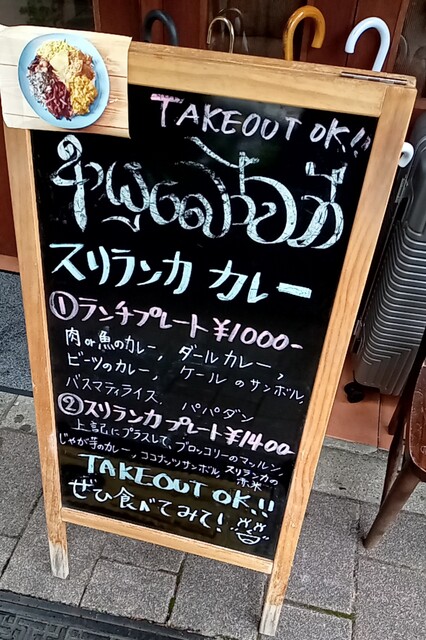 TAKEOUT OK!!
スリランカ カレー
①ランチプレート¥1000-
肉or魚のカレー, ダールカレー,
ビーツのカレー, ケールのサンボル,
バスマティライス, パパダン
②スリランカプレート¥1400
上記にプラスして, ブロッコリーのマッルン,
じゃが芋のカレー, ココナッツサンボル, スリランカの
赤米
TAKEOUT OK!!
ぜひ食べてみて!